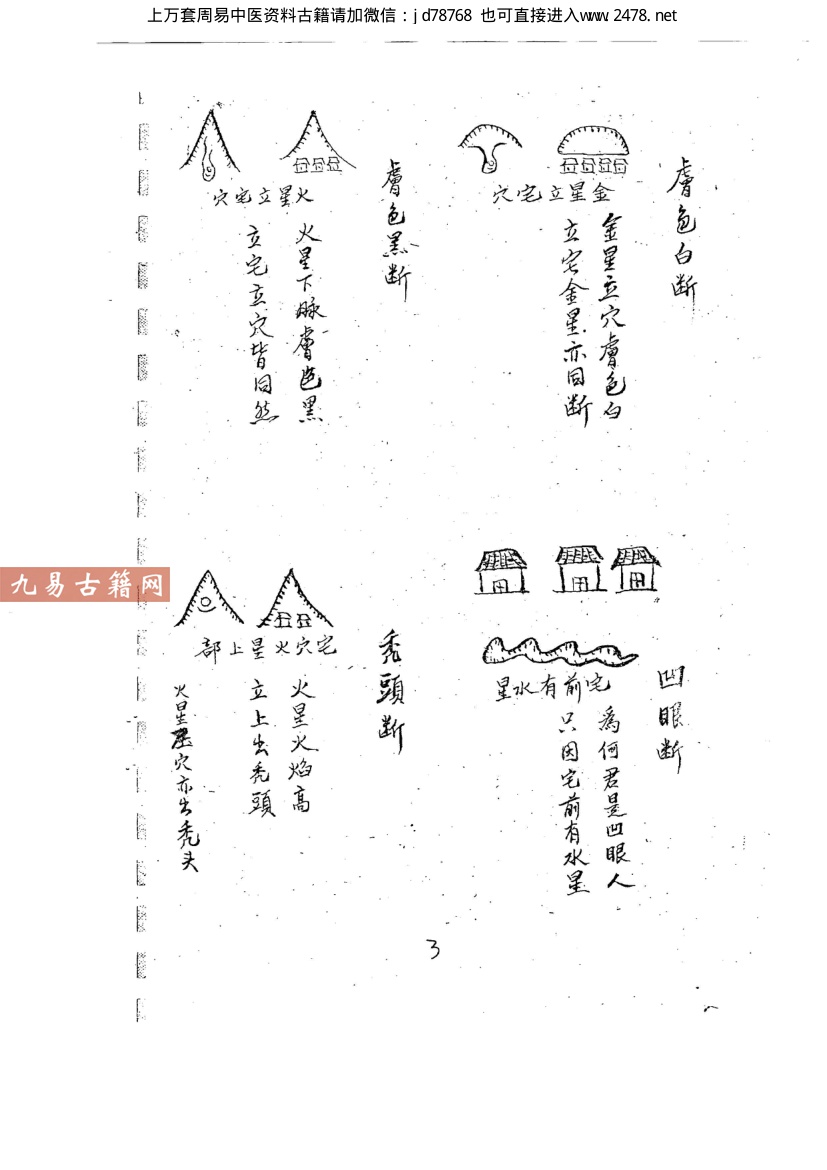 上万套周易中医资料古籍请加微信：jd78768 也可直接进入www.2478.net
膚色白断
金星立宅穴
金星立穴膚色白
立宅金星亦同断
膚色黑断
火星立宅穴
火星下脉膚色黑
立宅立穴皆同然
凹眼断
宅前有水星
為何君是凹眼人
只因宅前有水星
秃頭断
宅穴火星上部
火星火焰高
立上出秃頭
火星穴亦出秃头
九易古籍网
3